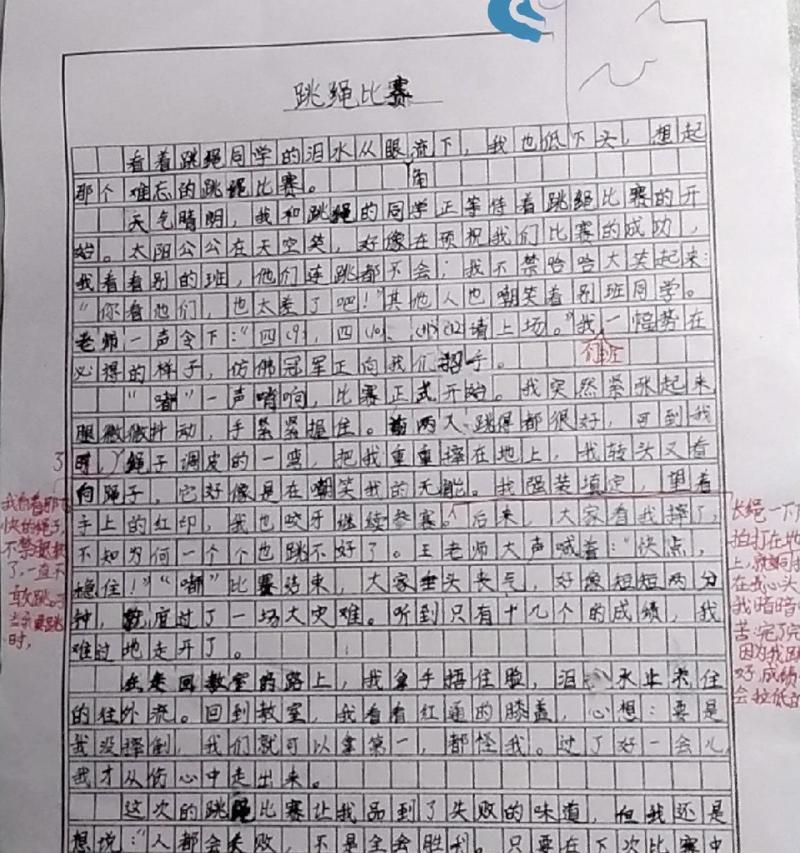 跳绳比赛
看着跳绳同学的泪水从眼流下，我也低下头，想起
角
那个难忘的跳绳比赛。
天气晴朗，我和跳绳的同学正等待着跳绳比赛的开
始。太阳公公在天空笑，好像在预祝我们比赛的成功，
我看看别的班，他们连跳都不会；我不禁哈哈大笑起来：
“你看他们，也太差了吧！”其他人也嘲笑着别班同学。
老师一声令下：“四(9)，四(10)、(11)(12)请上场。”我一幅势在
必得的样子，仿佛冠军正向我们招手。
“嘟”一声哨响，比赛正式开始。我突然紧张起来
腿微微抖动，手紧紧握住。前两人跳得都很好，可到我
了
时，绳子调皮的一弯，把我重重摔在地上，我转头又看
向绳子，它好像是在嘲笑我的无能。我强装填定，望着
手上的红印，我也咬牙继续参赛。后来，大家看我摔了，
不知为何一个个也跳不好了。王老师大声喊着：“快点，
稳住！”“嘟”比赛结束，大家垂头丧气，好像短短两分
钟，度过了一场大灾难。听到只有十几个的成绩，我
难过地走开了。
在走回教室的路上，我拿手捂住脸，泪水止不住
的往外流。回到教室，我看看红通的膝盖，心想：要是
我没摔倒，我们就可以拿第一，都怪我。过了好一会儿
我才从伤心中走出来。
这次的跳绳比赛让我品到了失败的味道，但我还是
想说：“人都会失败，不是全会胜利。只要在下次比赛中
我看着那
快的绳子
不禁
了一直不
敢跳。
当我要跳
时，
长绳一下
拍打在地
上，就如同打
在我心头
我暗暗
苦：完了完
因为我跳
好，成绩
会拉低的